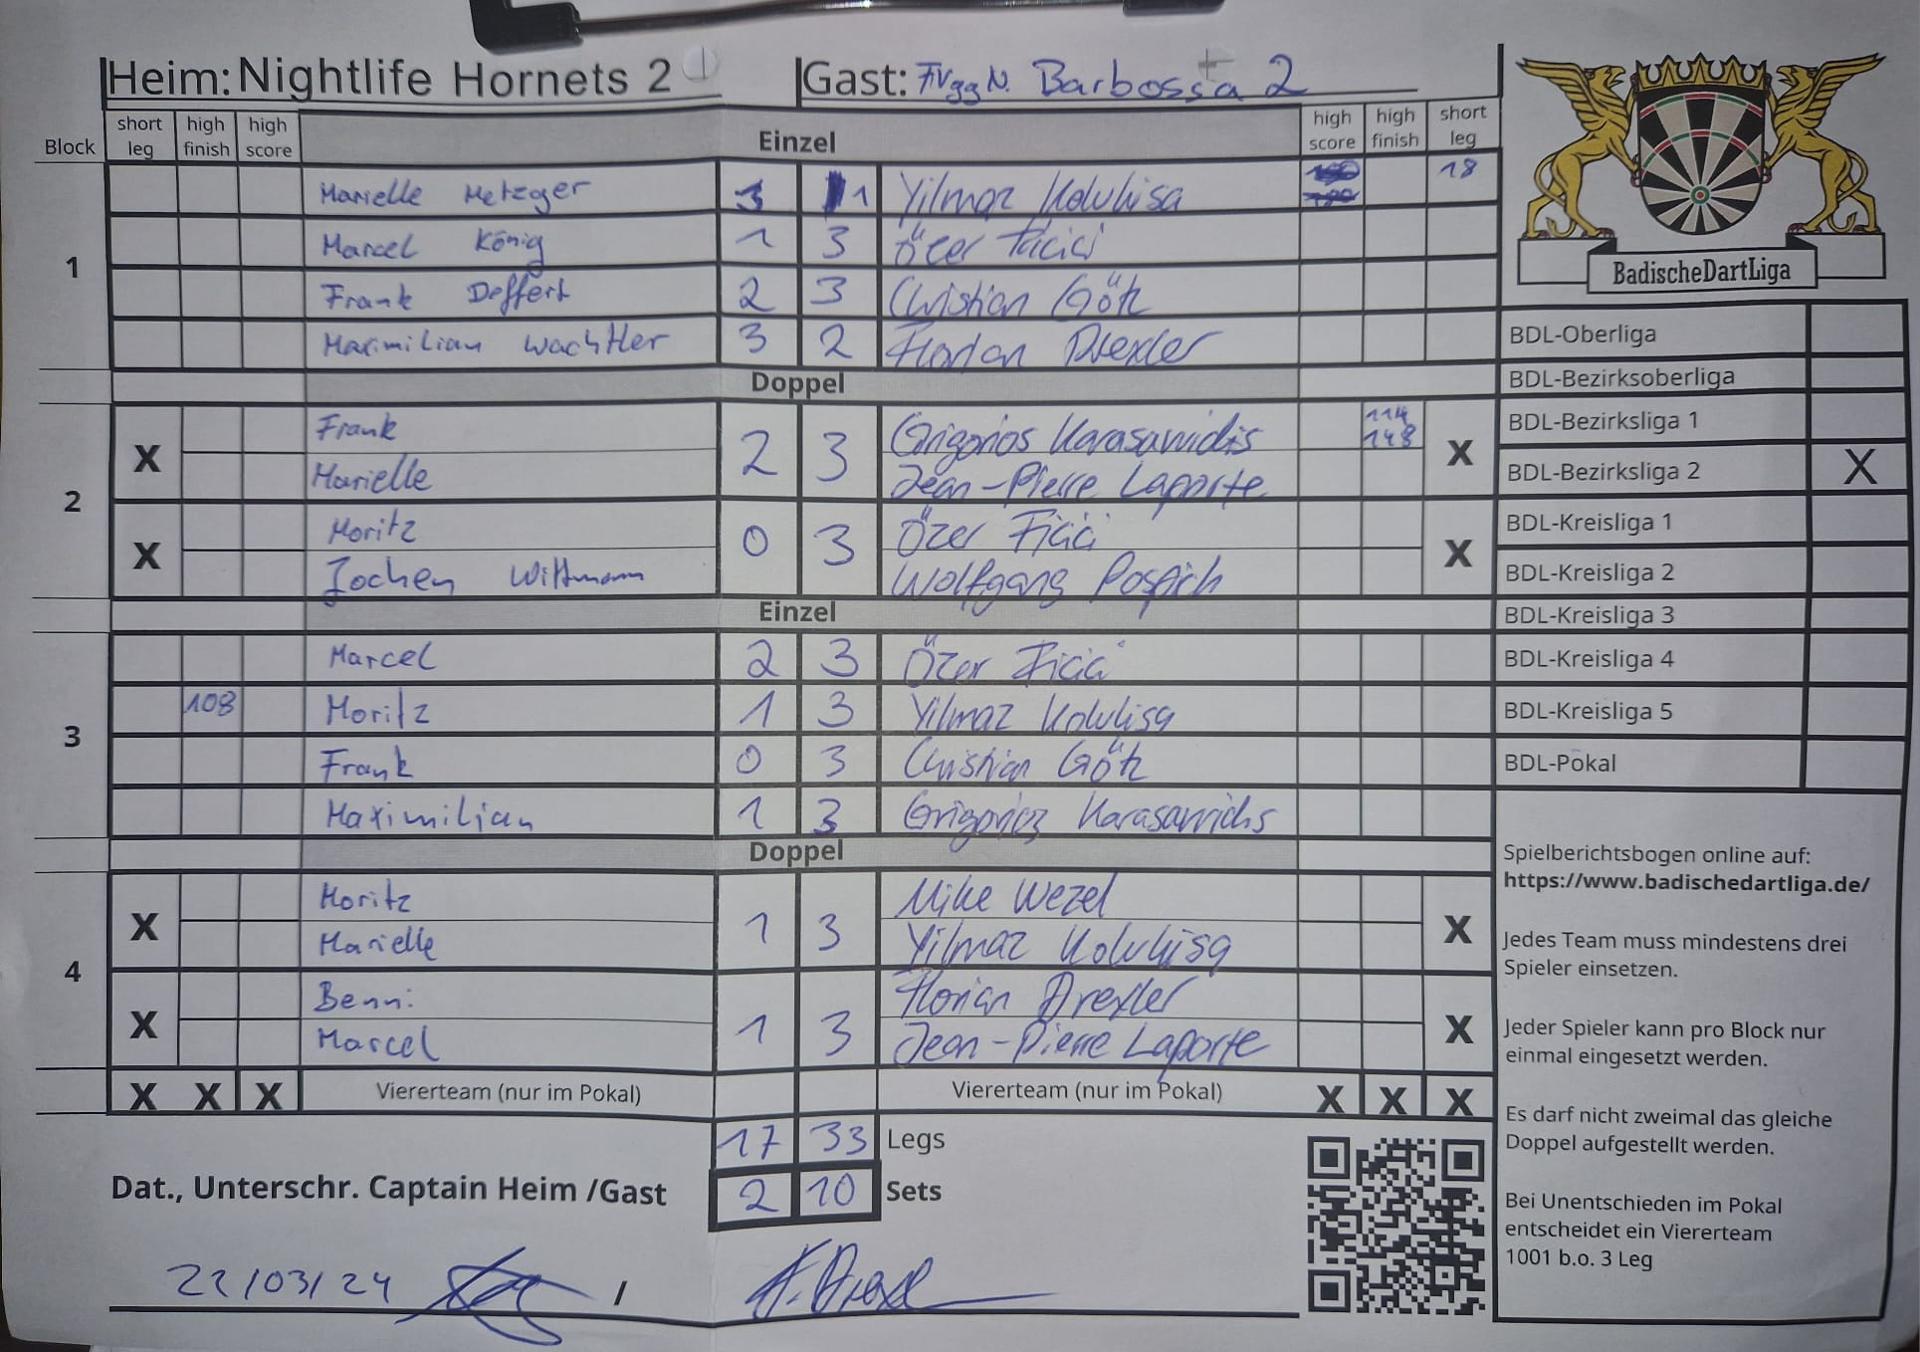 Heim: Nightlife Hornets 2 Gast: FVgg N. Barbossa 2
Block short leg high finish high score Einzel high score high finish short leg
1
Marielle Metzger 3 1 Yilmaz Kolukisa 18
Marcel König 1 3 Özer Ficici
Frank Deffert 2 3 Christian Götz
Maximilian Wachtler 3 2 Florian Drexler
Doppel
2
X Frank 2 3 Grigorios Karasavvidis 114 148 X
Marielle Jean-Pierre Laporte
X Moritz 0 3 Özer Ficici X
Jochen Wittmann Wolfgang Pospich
Einzel
3
Marcel 2 3 Özer Ficici
108 Moritz 1 3 Yilmaz Kolukisa
Frank 0 3 Christian Götz
Maximilian 1 3 Grigorios Karasavvidis
Doppel
4
X Moritz 1 3 Mike Wezel X
Marielle Yilmaz Kolukisa
X Benni 1 3 Florian Drexler X
Marcel Jean-Pierre Laporte
X X X Viererteam (nur im Pokal) Viererteam (nur im Pokal) X X X
17 33 Legs
Dat., Unterschr. Captain Heim /Gast 2 10 Sets
22/03/24 /
BadischeDartLiga
BDL-Oberliga
BDL-Bezirksoberliga
BDL-Bezirksliga 1
BDL-Bezirksliga 2 X
BDL-Kreisliga 1
BDL-Kreisliga 2
BDL-Kreisliga 3
BDL-Kreisliga 4
BDL-Kreisliga 5
BDL-Pokal
Spielberichtsbogen online auf:
https://www.badischedartliga.de/
Jedes Team muss mindestens drei
Spieler einsetzen.
Jeder Spieler kann pro Block nur
einmal eingesetzt werden.
Es darf nicht zweimal das gleiche
Doppel aufgestellt werden.
Bei Unentschieden im Pokal
entscheidet ein Viererteam
1001 b.o. 3 Leg